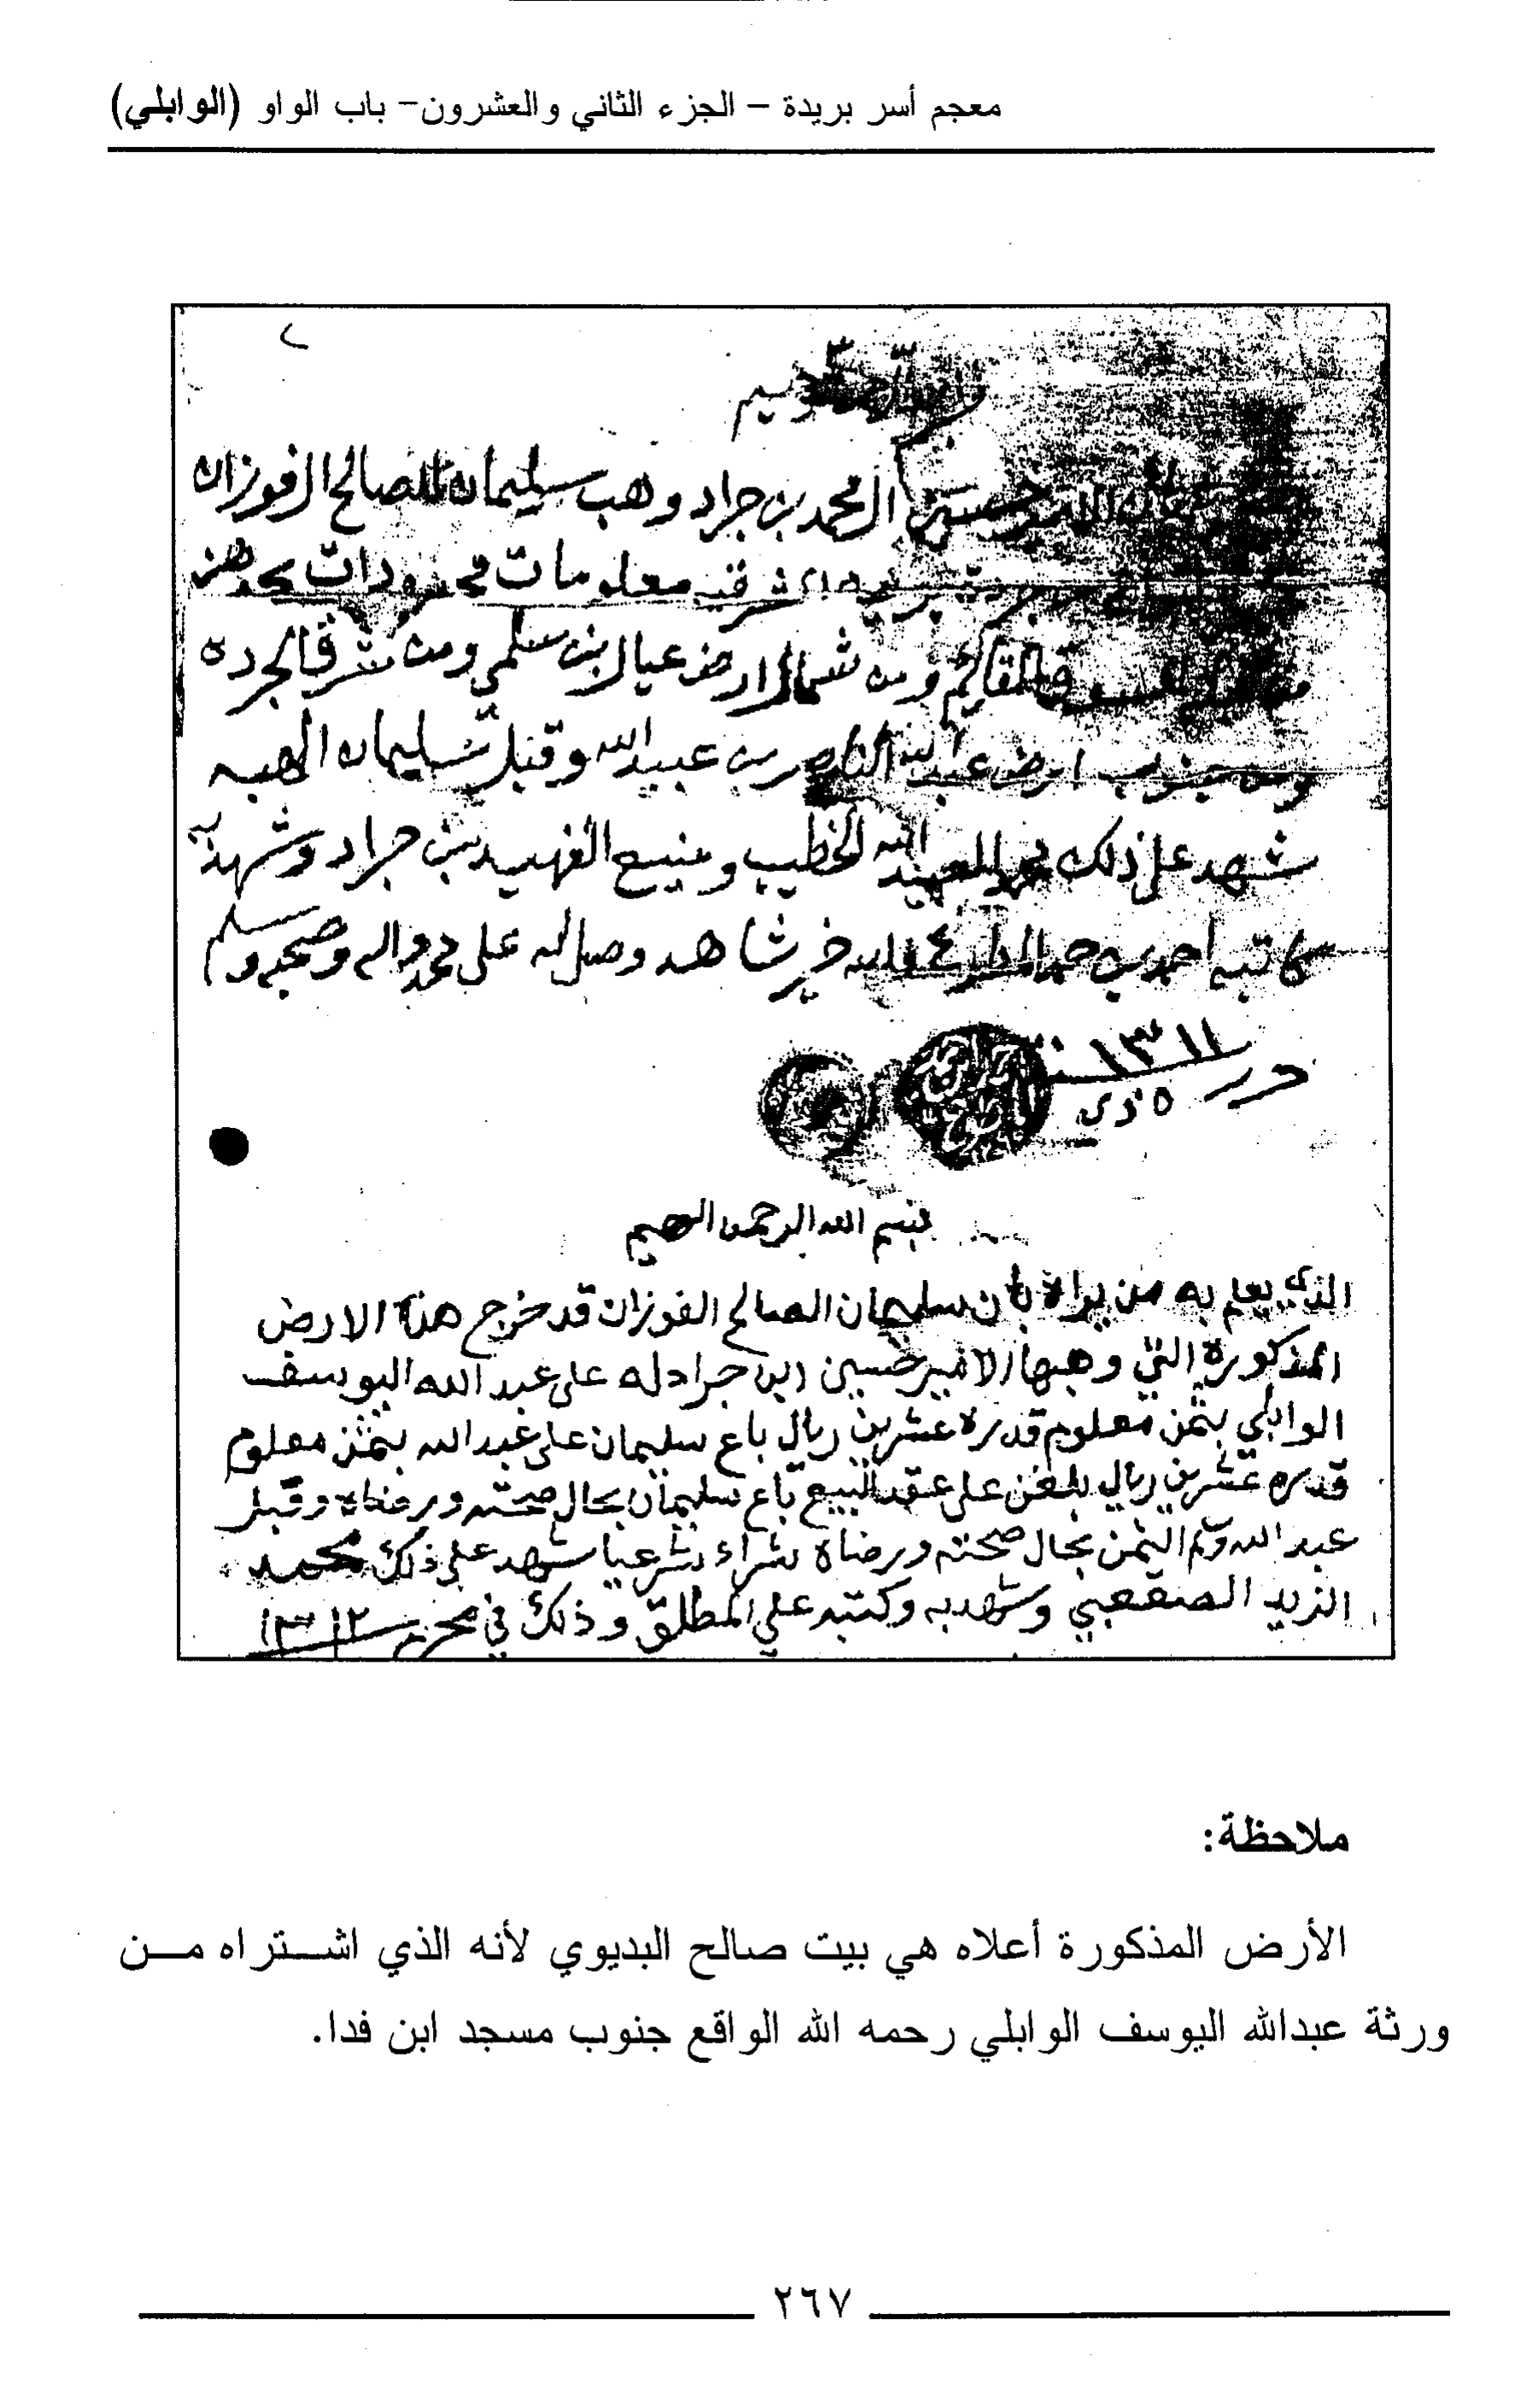 معجم أسر بريدة – الجزء الثاني والعشرون– باب الواو (الوابلي)
حسين المحمد بن جراد وهب سليمان الصالح الفوزان
معلومات محدودات يحدهن
ومن شمال ارض عيال بن سلمي ومن شرق الجرده
ومن جنوب ارض عبدالله الناصر بن عبيدالله وقبل سليمان الهبه
شهد على ذلك محمد العبدالله الخطيب ومنيع الفهيد بن جراد وشهد به
كاتبه احمد بن حمد والله خير شاهد وصلى الله على محمد واله وصحبه وسلم
حرر ١٣١١
بسم الله الرحمن الرحيم
الذي يعلم به من يراه بان سليمان الصالح الفوزان قد خرج هذه الارض
المذكورة التي وهبها الامير حسين ابن جراد له على عبدالله اليوسف
الوابلي بثمن معلوم قدره عشرين ريال باع سليمان على عبدالله بثمن معلوم
قدره عشرين ريال بلغن على عقد البيع باع سليمان بحال صحته ورضاه وقبل
عبدالله وتم الثمن بحال صحته ورضاه شراء شرعيا شهد على ذلك محمد
الزيد الصقعبي وشهد به وكتبه علي المطلق وذلك في محرم ١٣١٢
ملاحظة:
الأرض المذكورة أعلاه هي بيت صالح البديوي لأنه الذي اشتراه من
ورثة عبدالله اليوسف الوابلي رحمه الله الواقع جنوب مسجد ابن فدا.
٢٦٧